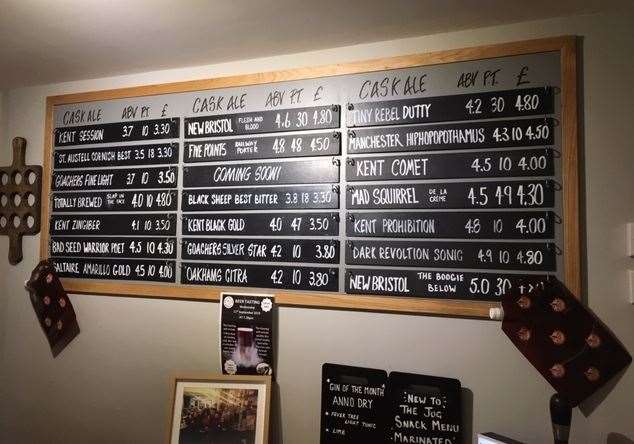 CASK ALE ABV PT. £
KENT SESSION 3.7 10 3.30
ST. AUSTELL CORNISH BEST 3.5 18 3.30
GOACHERS FINE LIGHT 3.7 10 3.50
TOTALLY BREWED SLAP IN THE FACE 4.0 10 4.80
KENT ZINGIBER 4.1 10 3.50
BAD SEED WARRIOR POET 4.5 10 4.30
SALTAIRE AMARILLO GOLD 4.5 10 4.00
CASK ALE ABV P.T. £
NEW BRISTOL FLESH AND BLOOD 4.6 30 4.80
FIVE POINTS RAILWAY PORTER 4.8 48 4.50
COMING SOON!
BLACK SHEEP BEST BITTER 3.8 18 3.30
KENT BLACK GOLD 4.0 47 3.50
GOACHERS SILVER STAR 4.2 10 3.80
OAKHAMS CITRA 4.2 10 3.80
CASK ALE ABV PT. £
TINY REBEL DUTTY 4.2 30 4.80
MANCHESTER HIPHOPOPOTHAMUS 4.3 10 4.50
KENT COMET 4.5 10 4.00
MAD SQUIRREL DE LA CREME 4.5 49 4.30
KENT PROHIBITION 4.8 10 4.00
DARK REVOLTION SONIC 4.9 10 4.80
NEW BRISTOL THE BOOGIE BELOW 5.0 30
BEER TASTING
GIN OF THE MONTH
ANNO DRY
• FEVER TREE
LIGHT TONIC
• LIME
NEW TO
THE JUG
SNACK MENU
MARINATED